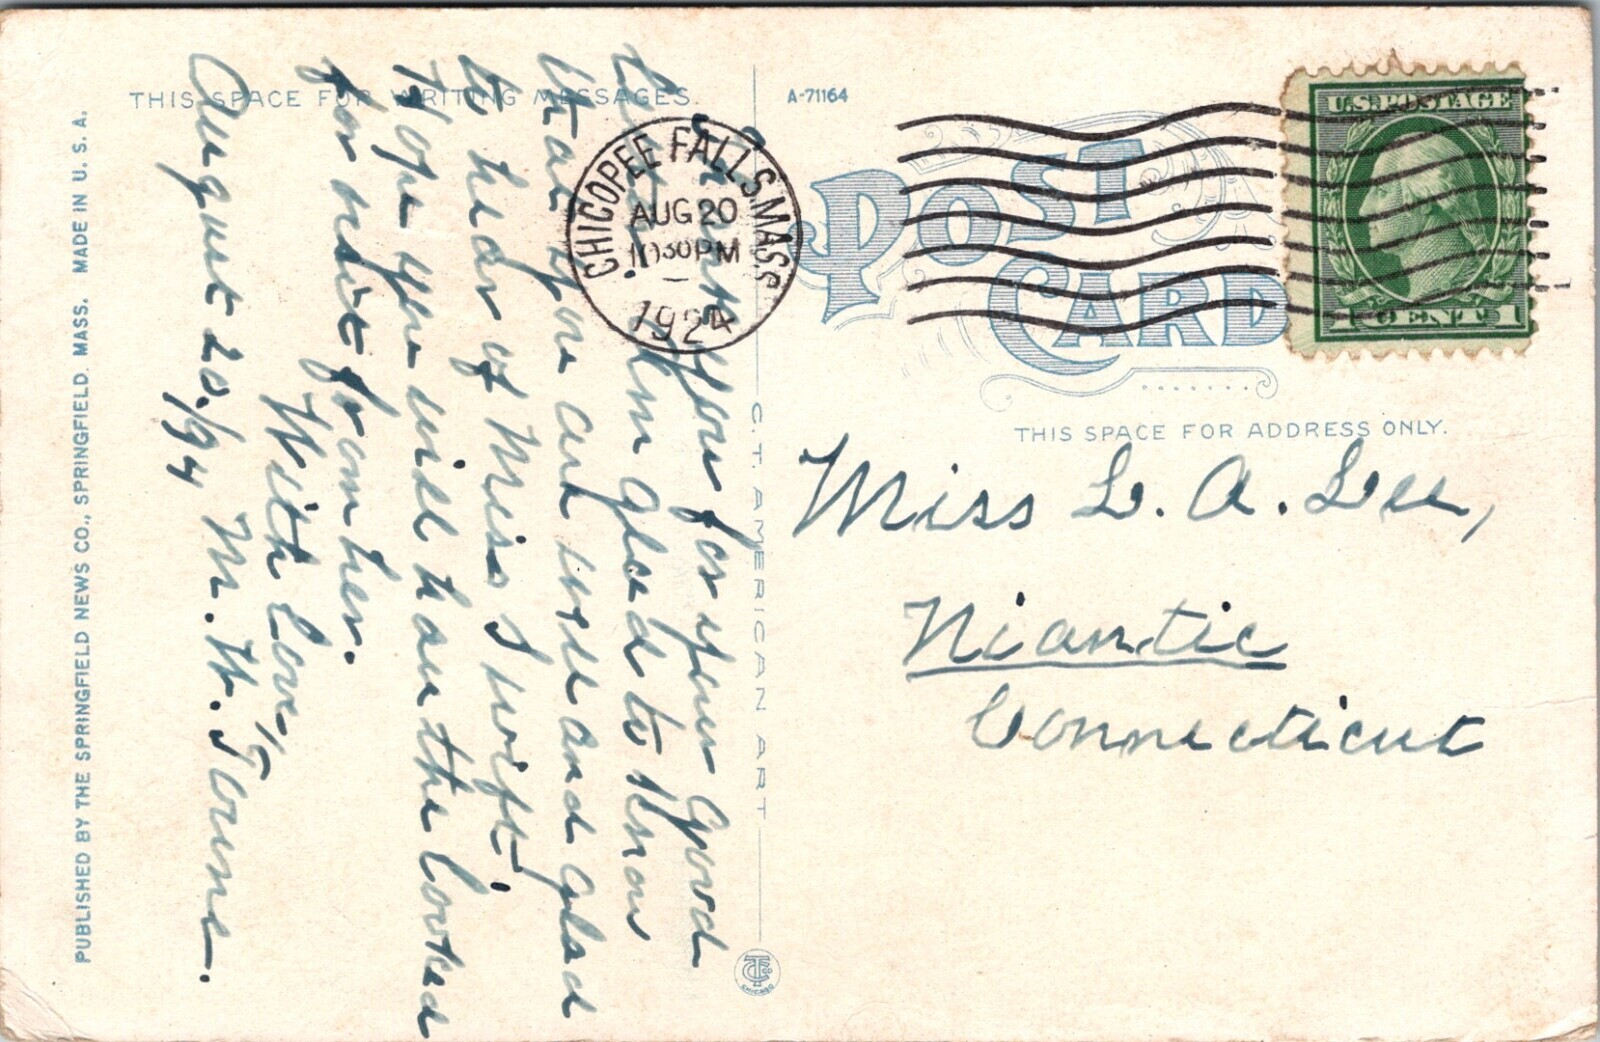 THIS SPACE FOR WRITING MESSAGES.
A-71164
POST CARD
THIS SPACE FOR ADDRESS ONLY.
U.S. POSTAGE
1 CENT 1
CHICOPEE FALLS, MASS.
AUG 20
1030 PM
1924
you for your Good
Letter. Am glad to know
that you are well and glad
to hear of Miss Swift.
Hope you will have the looked
for visit from her.
With love,
August 20. 1924 M. H. Towne.
Miss L. A. Lee,
Niantic
Connecticut
C. T. AMERICAN ART
CHICAGO
PUBLISHED BY THE SPRINGFIELD NEWS CO., SPRINGFIELD, MASS. MADE IN U. S. A.